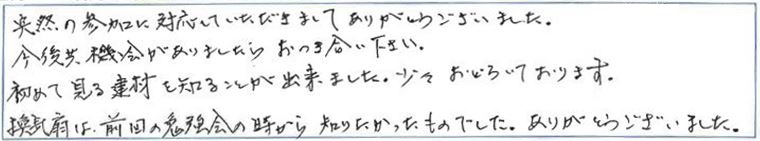 突然の参加に対応していただきましてありがとうございました。
今後共機会がありましたらおつき合い下さい。
初めて見る建材を知ることが出来ました。少々おどろいております。
換気扇は、前回の勉強会の時から知りたかったものでした。ありがとうございました。